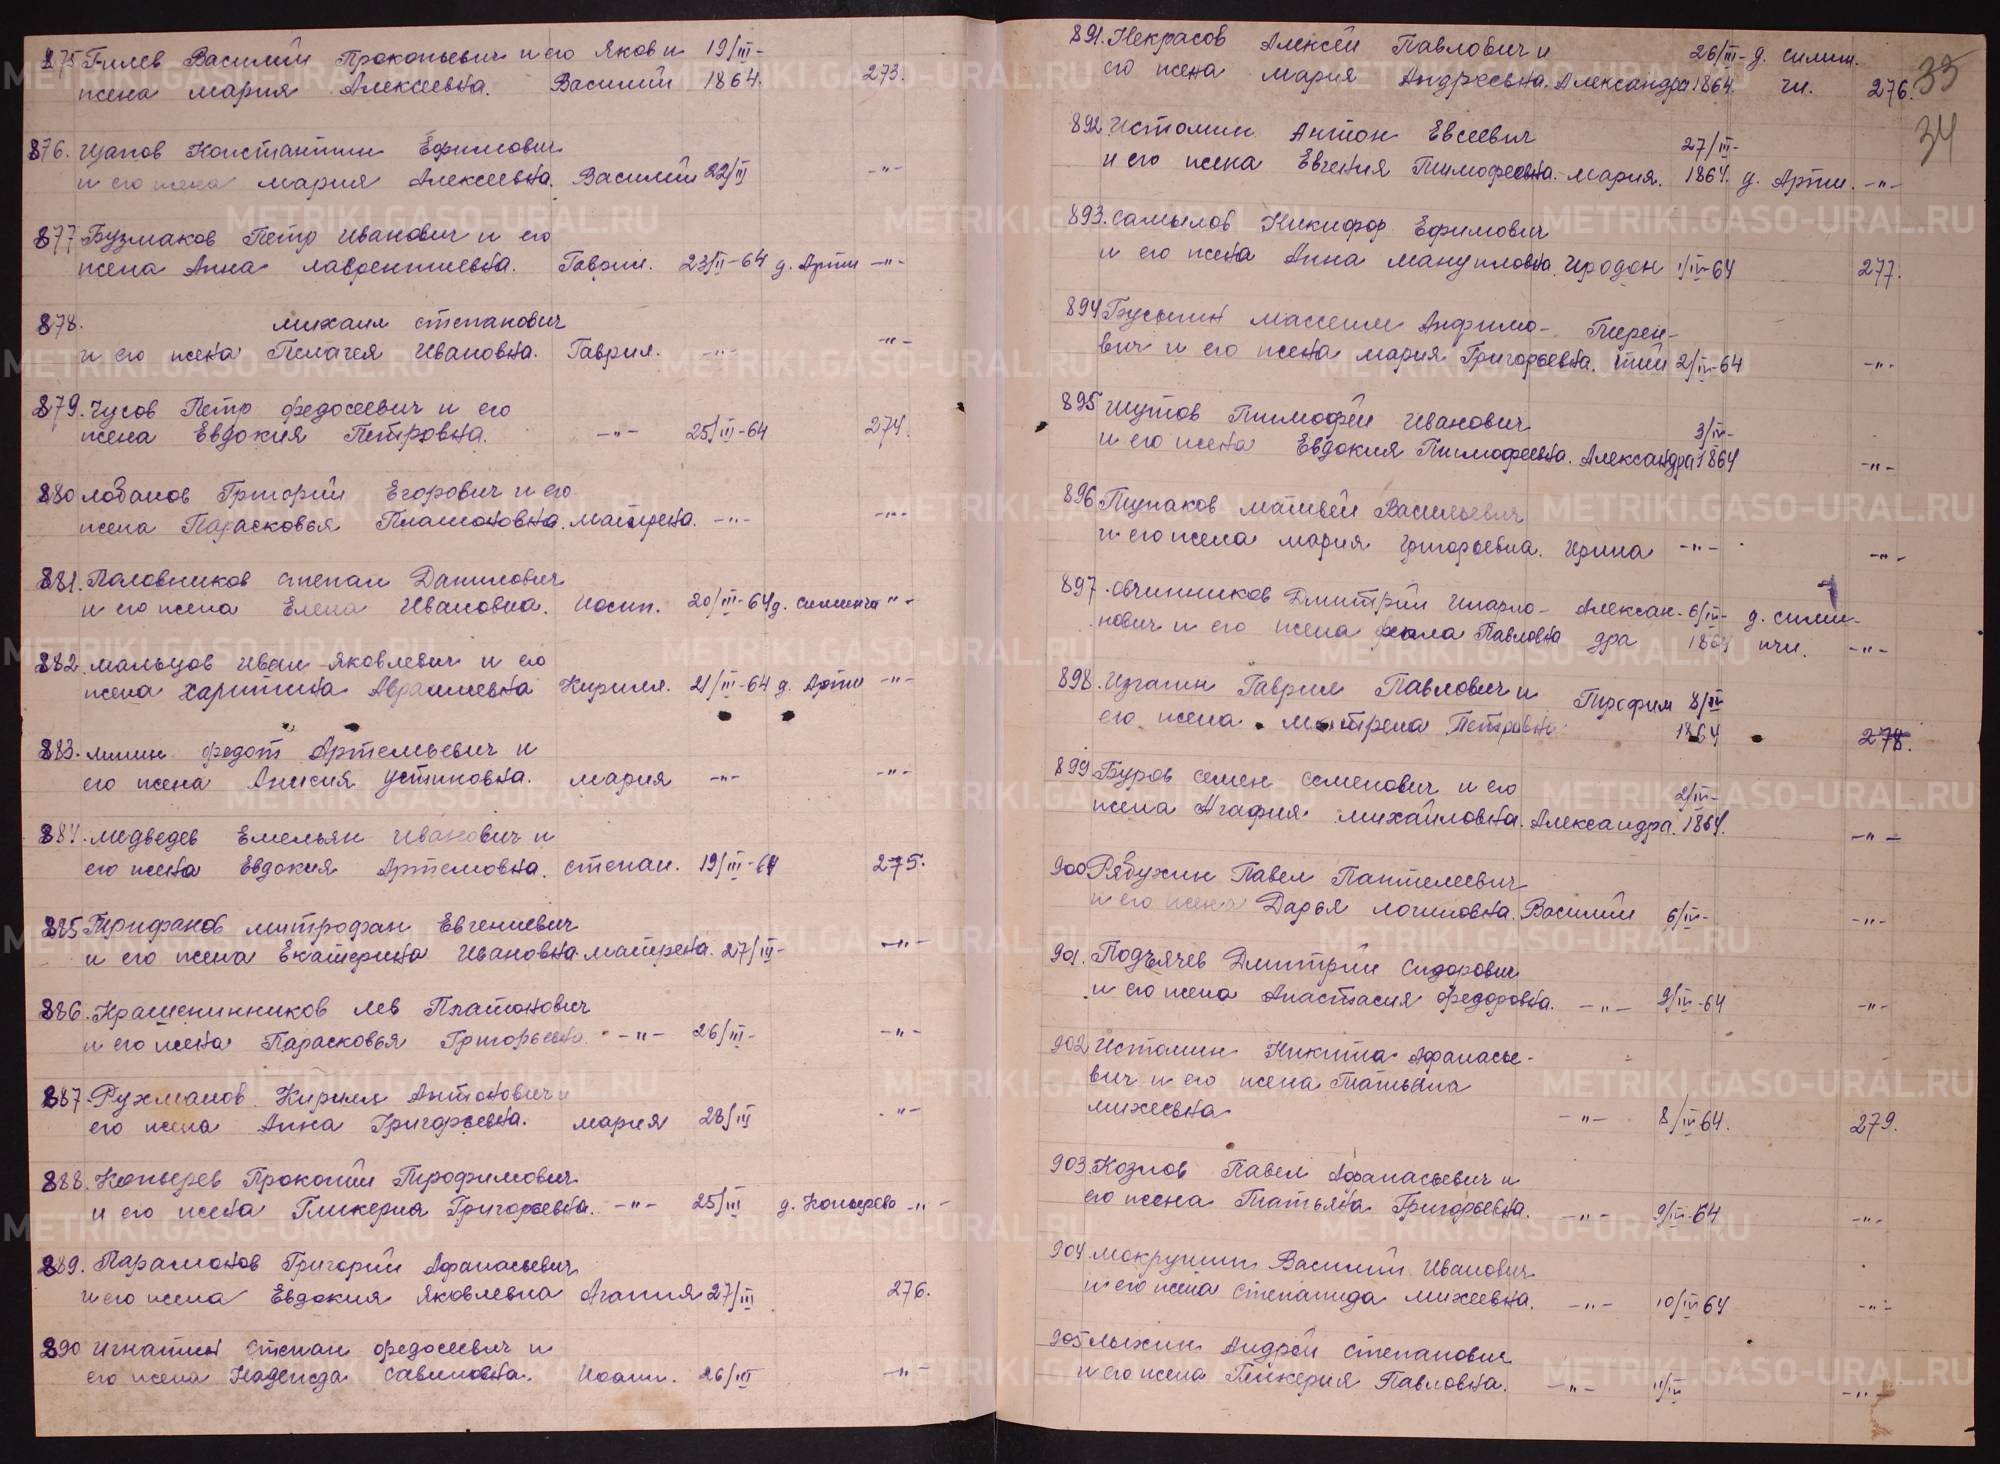 875 Гилев Василий Прокопьевич и его Яков и 19/III-
жена Мария Алексеевна. Василий 1864. 273.
876. Щапов Константин Ефимович
и его жена Мария Алексеевна. Василий 22/III -"-
877 Бузмаков Петр Иванович и его
жена Анна Лаврентиевна. Гаврил. 23/III-64 д. Арти -"-
878. Михаил Степанович
и его жена Пелагея Ивановна. Гаврил. -"- -"-
879. Чусов Петр Федосеевич и его
жена Евдокия Петровна. -"- 25/III-64 274.
880 Лобанов Григорий Егорович и его
жена Парасковья Платоновна. Матрена. -"- -"-
881. Половников Степан Данилович
и его жена Елена Ивановна. Иосип. 20/III-64 д. Симинчи -"-
882. Мальцов Иван Яковлевич и его
жена Харитина Авраамиевна Кирилл. 21/III-64 д. Арти -"-
883. Минин Федот Артемьевич и
его жена Анисия Устиновна. Мария -"- -"-
884. Медведев Емельян Иванович и
его жена Евдокия Артемовна. Степан. 19/III-64 275.
885 Трифанов Митрофан Евгениевич
и его жена Екатерина Ивановна. Матрена. 27/III- -"-
886. Крашенинников Лев Платонович
и его жена Парасковья Григорьевна. -"- 26/III- -"-
887. Рухманов Кирилл Антонович и
его жена Анна Григорьевна. Мария 28/III -"-
888. Копырев Прокопий Трофимович
и его жена Гликерия Григорьевна. -"- 25/III д. Копырево -"-
889. Парамонов Григорий Афанасьевич
и его жена Евдокия Яковлевна Агапия 27/III 276.
890 Игнатин Степан Федосеевич и
его жена Надежда Савиновна. Иоанн. 26/III -"-
33
34
891. Некрасов Алексей Павлович и 26/III- д. Симин.
его жена Мария Андреевна. Александра 1864. чи. 276.
892. Истомин Антон Евсеевич 27/III-
и его жена Евгения Тимофеевна. Мария. 1864. д. Арти. -"-
893. Самылов Никифор Ефимович
и его жена Анна Мануиловна. Иродон 1/IV-64 277.
894 Бусыгин Массеим Анфимо- Терен-
вич и его жена Мария Григорьевна. тий 2/IV-64 -"-
895 Шутов Тимофей Иванович 3/IV-
и его жена Евдокия Тимофеевна. Александра 1864 -"-
896 Тупаков Матвей Васильевич
и его жена Мария Григорьевна. Ирина -"- -"-
897. Овчинников Дмитрий Ипатло- Алексан- 6/IV- д. Симин-
нович и его жена Павловна дра 1864 ичи. -"-
898. Изгагин Гаврил Павлович и Трофим 8/IV
его жена Матрена Петровна 1864 278.
899 Буров Семен Семенович и его 2/IV-
жена Агафия Михайловна. Александра. 1864. -"-
900 Рябухин Павел Пантелеевич
и его жена Дарья Логиновна. Василий 6/IV- -"-
901. Подъячев Дмитрий Сидорович
и его жена Анастасия Федоровна. -"- 9/IV-64 -"-
902 Истомин Никита Афанасье-
вич и его жена Татьяна
Михеевна -"- 8/IV 64. 279.
903. Козлов Павел Афанасьевич и
его жена Татьяна Григорьевна. -"- 9/IV-64 -"-
904. Мокрушин Василий Иванович
и его жена Степанида Михеевна. -"- 10/IV 64 -"-
905 Лыхин Андрей Степанович
и его жена Гликерия Павловна. -"- 11/IV -"-